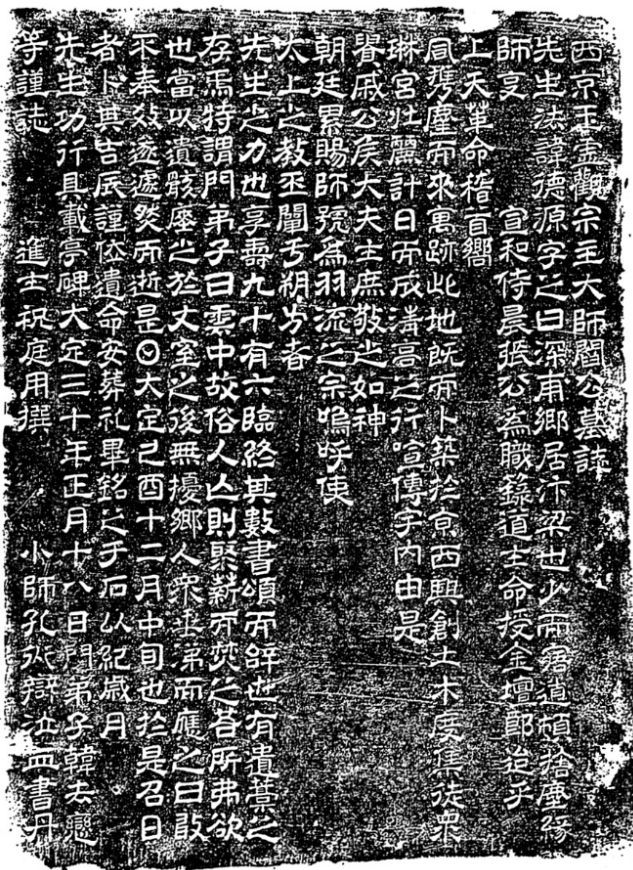 西京玉虛觀宗主大師閻公墓誌
先生法諱德源字之曰深甫鄉居汴梁也少而寤道頓捨塵緣
師叓 宣和侍晨張公為職籙道士命授金壇郎迨乎
上天革命稽首嚮
風攜麈而來寓跡此地既而卜築於京西興創土木度集徒眾
琳宮壯麗計日而成清高之行喧傳宇內由是
貴戚公侯大夫士庶敬之如神
朝廷累賜師號為羽流之宗嗚呼使
太上之教丕闡于朔方者
先生之力也享壽九十有六臨終其數書頌而辭世有遺藁之
存焉特謂門弟子曰雲中故俗人亡則聚薪而焚之吾所弗欲
也當以遺骸瘞之於丈室之後無擾鄉人眾垂涕而應之曰敢
不奉效遂遽然而逝是日大定己酉十二月中旬也於是召日
者卜其吉辰謹依遺命安葬礼畢銘之于石以紀歲月
先生功行具載亭碑大定三十年正月十八日門弟子韓去愆
等謹誌 進士祝庭用撰 小師孔辯泣血書丹